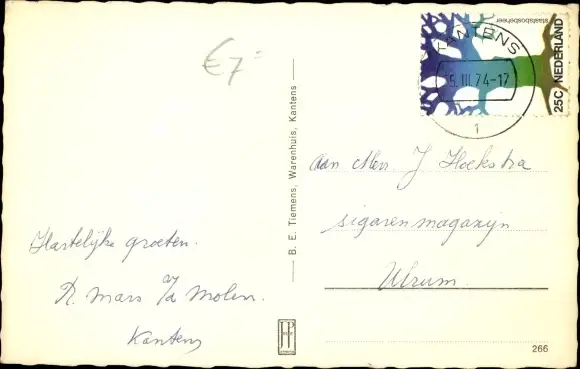 €7=
staatsbosbeheer
25C NEDERLAND
KANTENS
5.III.74-17
1
B. E. Tiemens, Warenhuis, Kantens
aan Mevr. J Hoekstra
sigarenmagazijn
Ulrum.
Hartelijke groeten.
R. Mars v/d Molen.
Kantens
HP
266